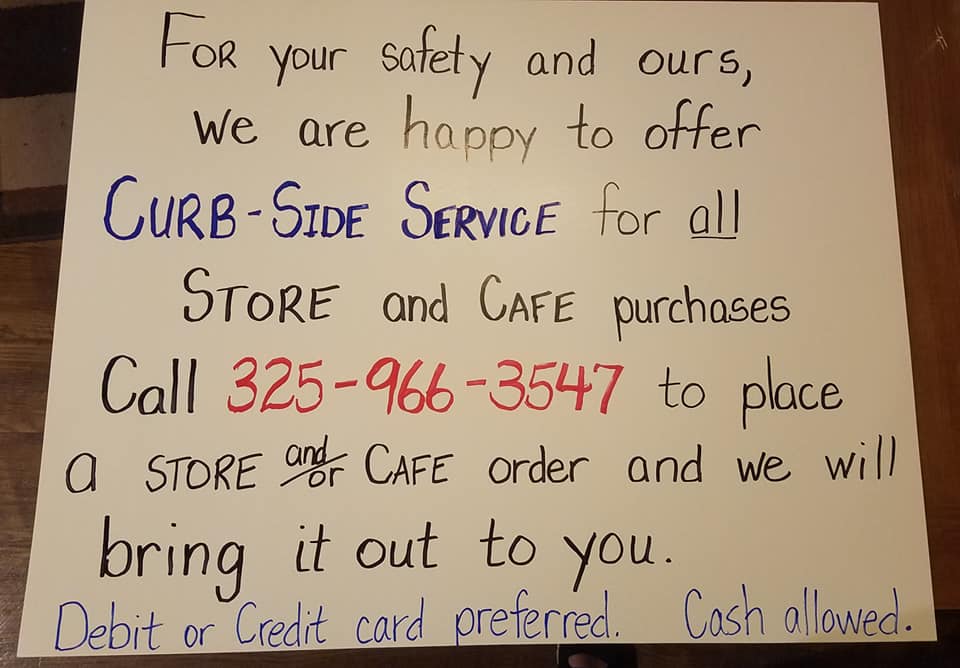 FOR your safety and ours,
we are happy to offer
CURB-SIDE SERVICE for all
STORE and CAFE purchases
Call 325-966-3547 to place
a STORE and/or CAFE order and we will
bring it out to you.
Debit or Credit card preferred. Cash allowed.